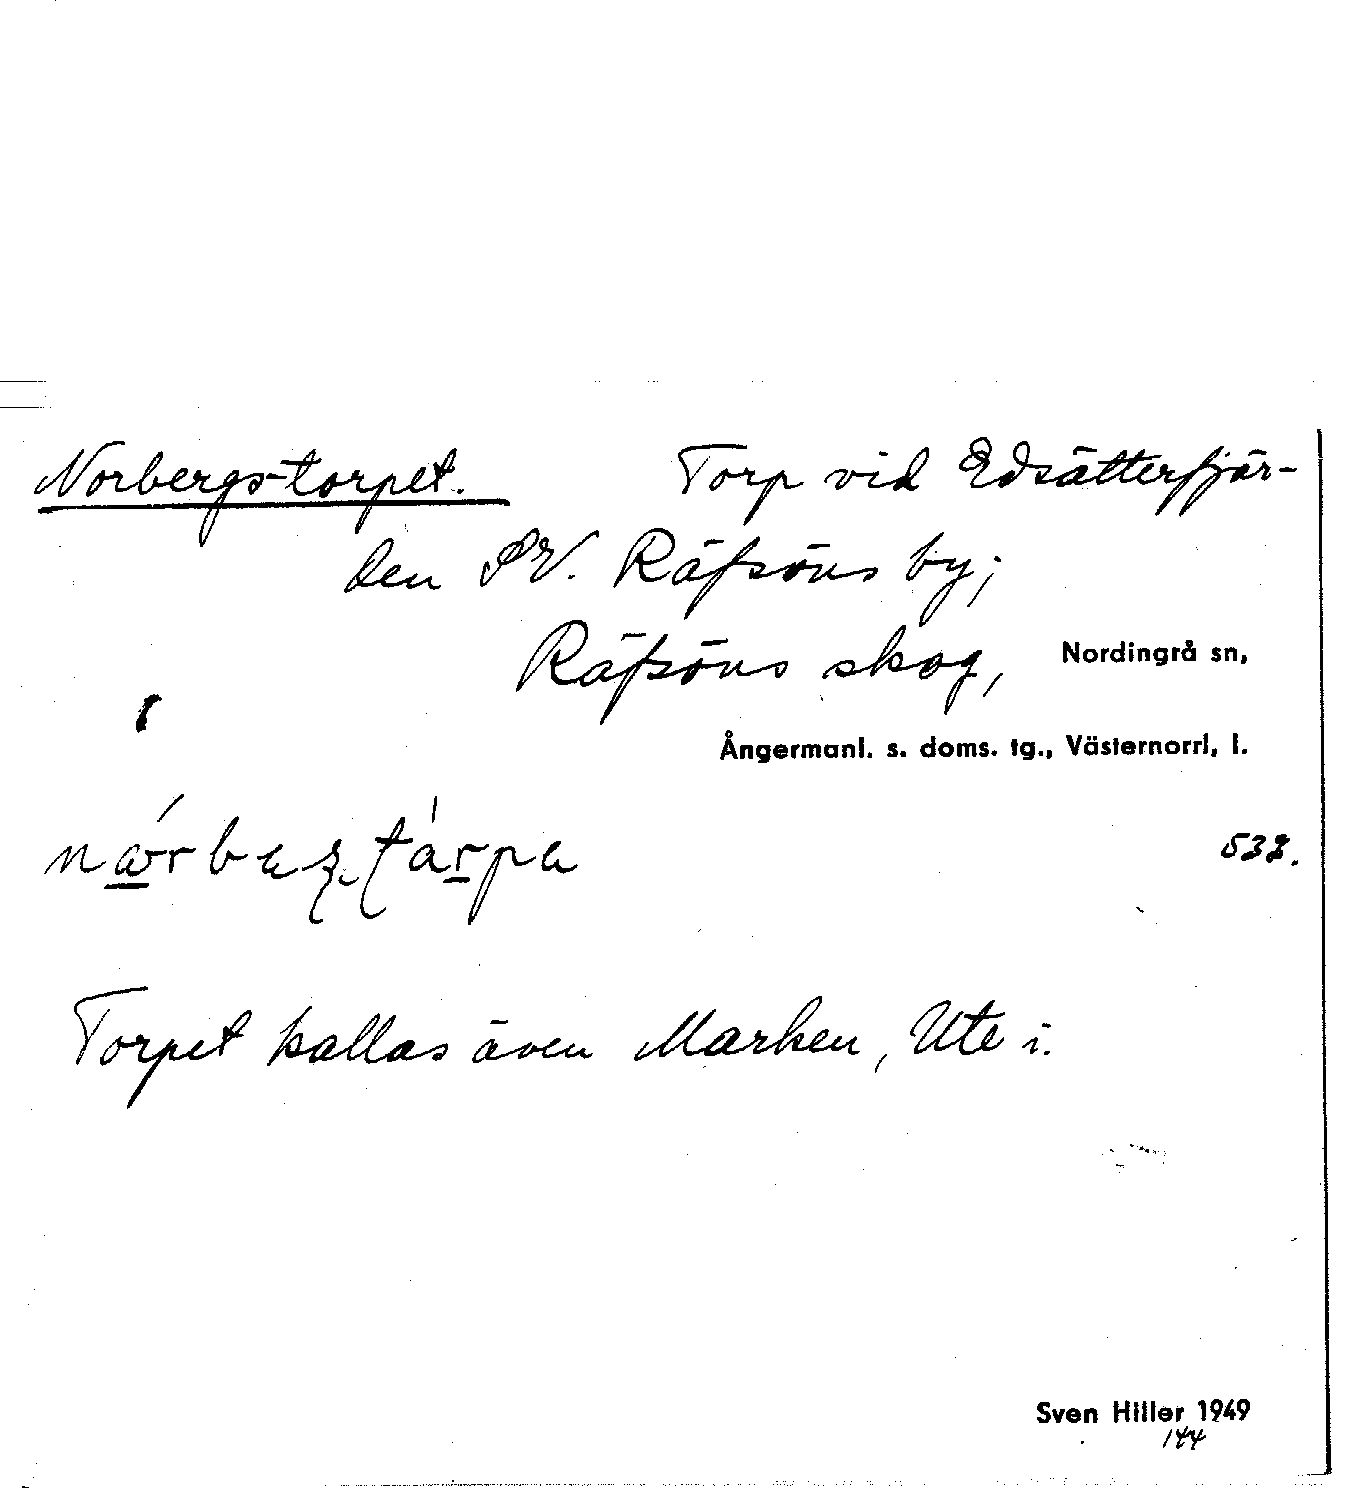 Norbergs-torpet. Torp vid Edsätterfjär-
den SV. Räfsöns by;
Räfsöns skog, Nordingrå sn,
Ångermanl. s. doms. tg., Västernorrl. l.
533.
Torpet kallas även Marken, Ute i.
Sven Hiller 1949
144